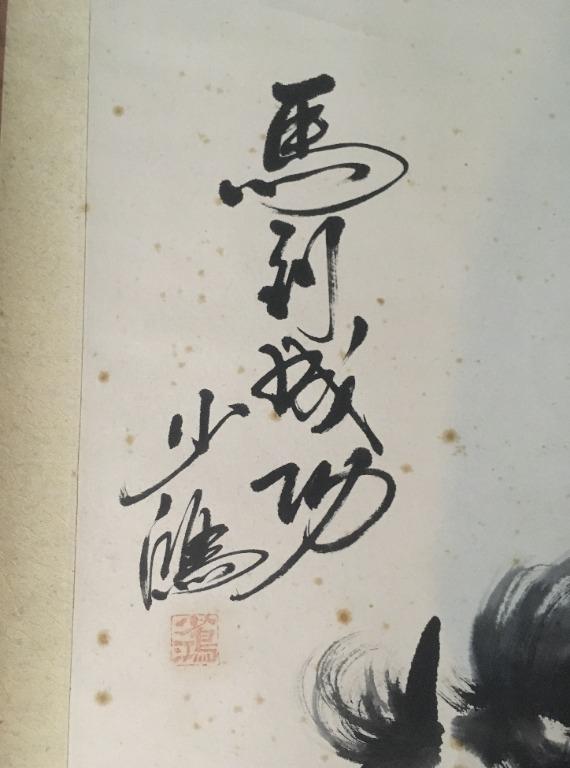 馬到成功
少鴻